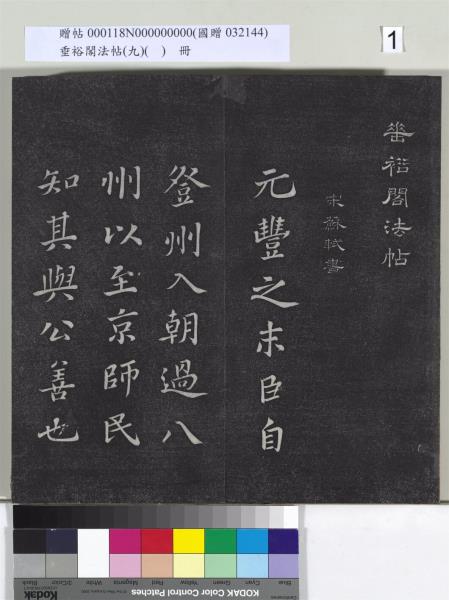 贈帖 000118N000000000(國贈 032144)
垂裕閣法帖(九)( ) 冊
1
垂裕閣法帖
宋蘇軾書
元豐之末臣自
登州入朝過八
州以至京師民
知其與公善也
Blue
Cyan
Green
Yellow
Red
Magenta
White
3/Color
Black
KODAK Color Control Patches
Kodak